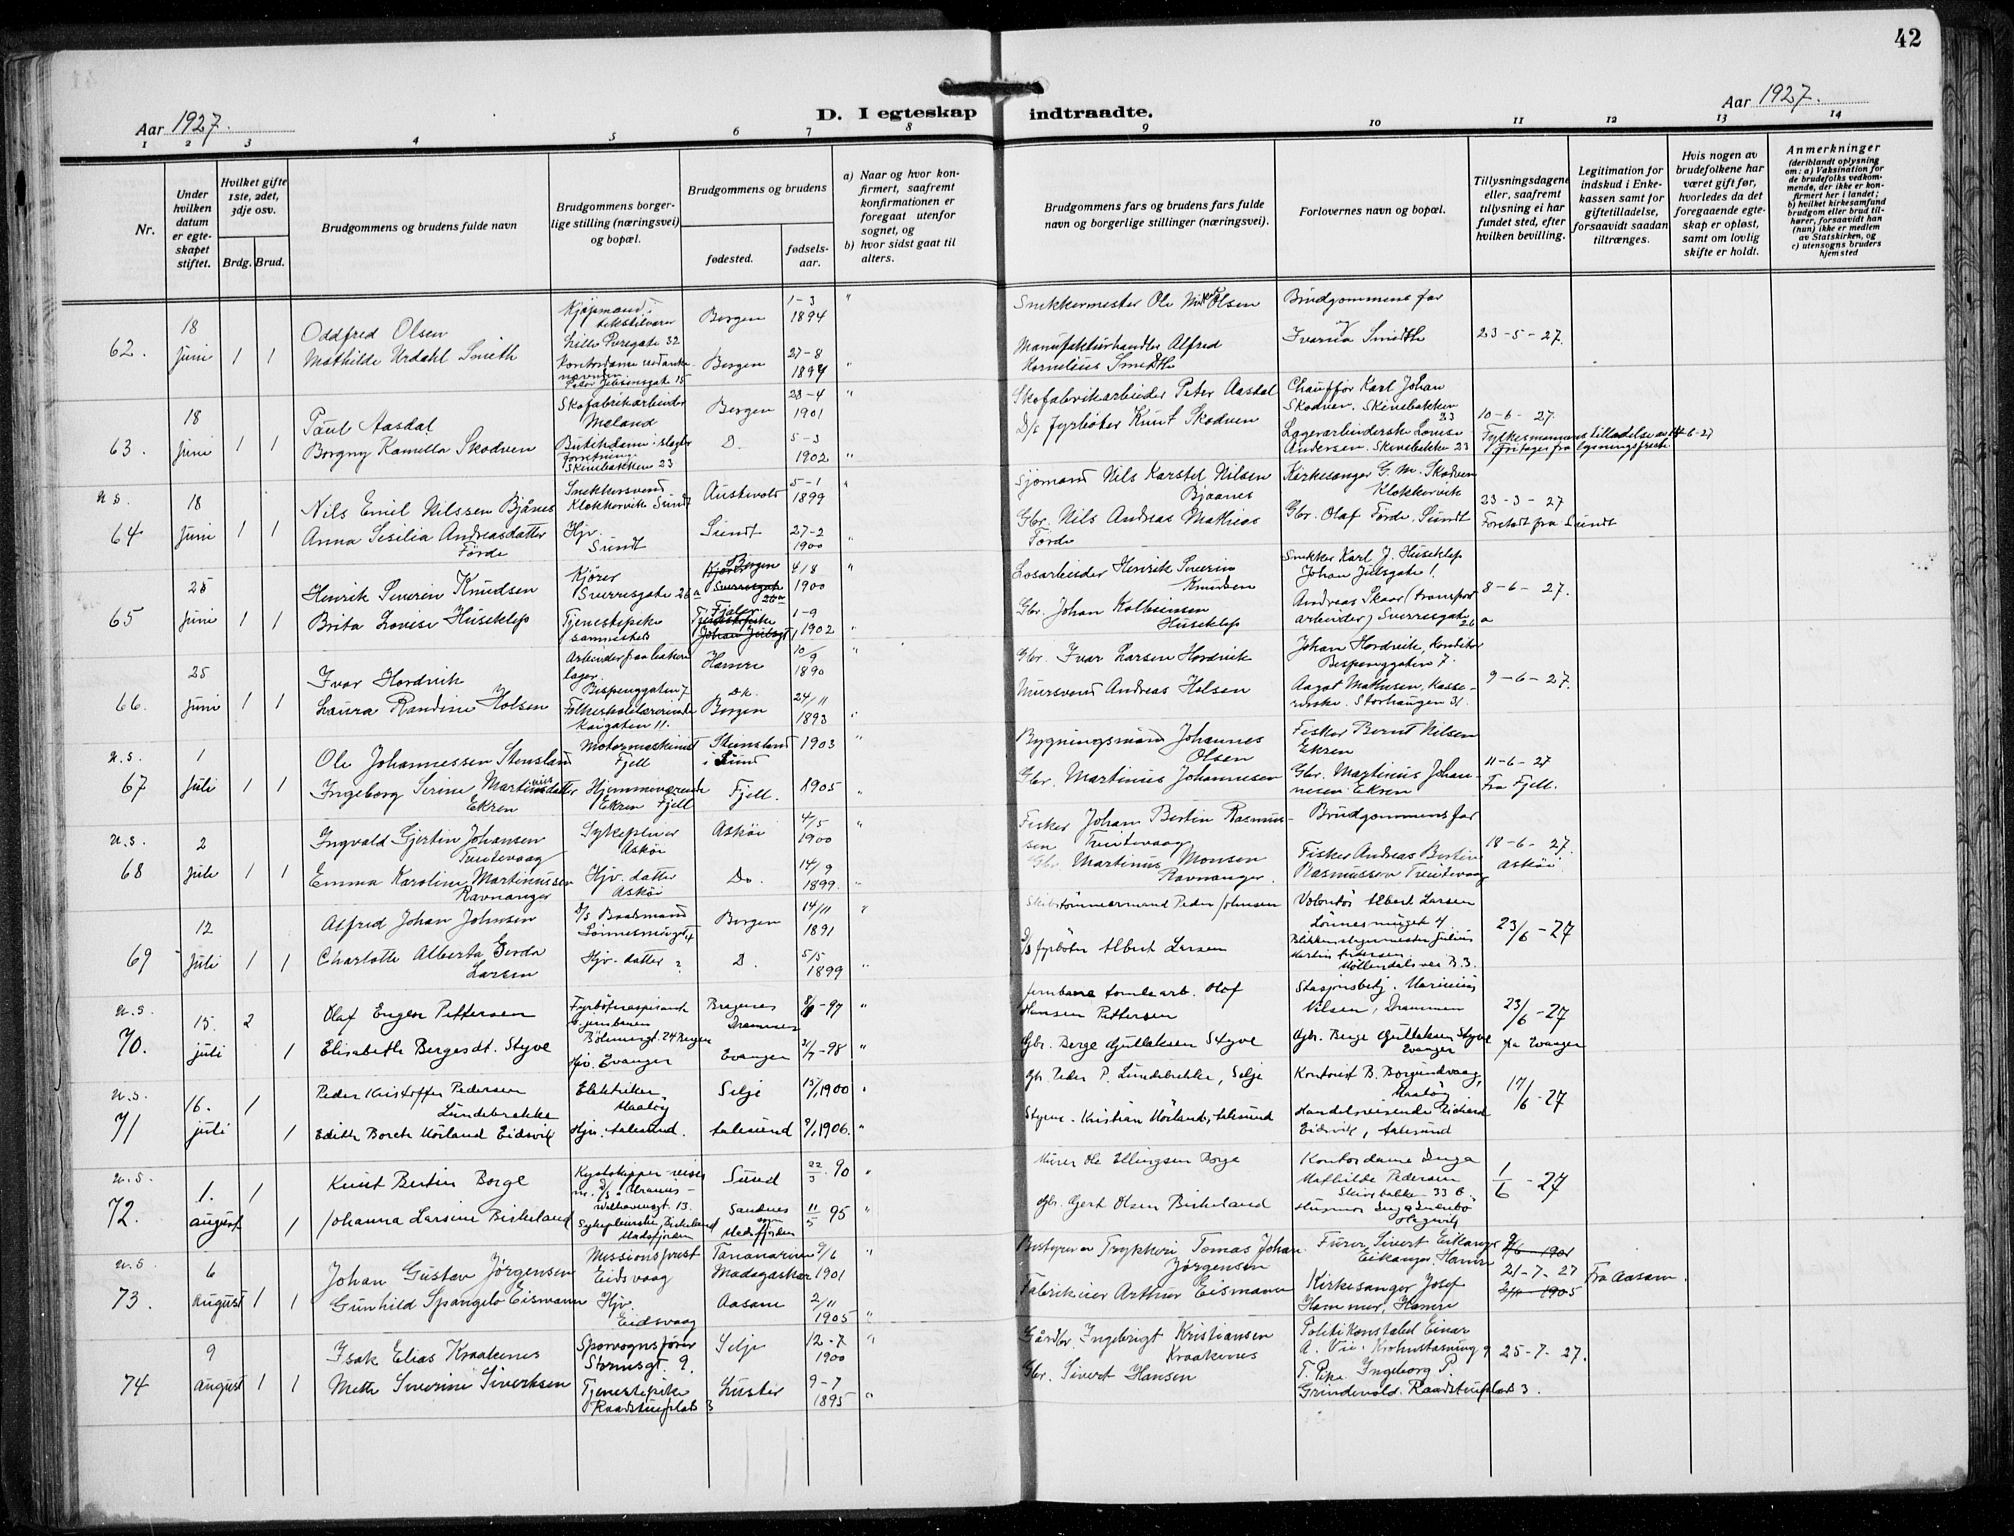 42
Aar 1927.
D. I egteskap indtraadte.
Aar 1927.
1 2 3 4 5 6 7 8 9 10 11 12 13 14
Nr.
Under hvilken datum er egteskapet stiftet.
Hvilket gifte 1ste, 2det, 3dje osv.
Brdg. Brud.
Brudgommens og brudens fulde navn
Brudgommens borgerlige stilling (næringsvei) og bopæl.
Brudgommens og brudens
fødested.
fødselsaar.
a) Naar og hvor konfirmert, saafremt konfirmationen er foregaat utenfor sognet, og
b) hvor sidst gaat til alters.
Brudgommens fars og brudens fars fulde navn og borgerlige stillinger (næringsvei).
Forlovernes navn og bopæl.
Tillysningsdagene eller, saafremt tillysning ei har fundet sted, efter hvilken bevilling.
Legitimation for indskud i Enkekassen samt for giftetilladelse, forsaavidt saadan tiltrænges.
Hvis nogen av brudefolkene har været gift før, hvorledes da det foregaaende egteskap er opløst, samt om lovlig skifte er holdt.
Anmerkninger
(deriblandt oplysning om: a) Vaksination for de brudefolks vedkommende, der ikke er konfirmert her i landet; b) hvilket kirkesamfund brudgom eller brud tilhører, forsaavidt han (hun) ikke er medlem av Statskirken, og c) utensogns bruders hjemsted
62. 18 Juni 1 1
Oddfred Olsen
Kjøpmand i tekstilvarer Lille Øvregate 32
Bergen 1-3 1894 "
Snekkermester Ole Olsen
Brudgommens far
Mathilde Urdahl Smith
Kontordame Peter Jebsensgate 15
Bergen 27-8 1894 "
Manufakturhandler Alfred Kornelius Smidth
Ivarna Smidth
23-5-27.
63. 18 Juni 1 1
Paul Aasdal
Skofabrikarbeider Meland
Bergen 23-4 1901 "
Skofabrikarbeider Peter Aasdal
Chauffør Karl Johan Skodven. Skivebakken 23
Borgny Kamilla Skodven
Butikdame i slagterforretning Skivebakken 23
D. 5-3 1902 "
D/s fyrbøter Knut Skodven
Lagerarbeiderske Lovise Andersen. Skivebakke 23
10-6-27.
Fylkesmannens tilladelse av 14-6-27 Fritager fra lysningsfrist.
u.s.
64 18 Juni 1 1
Nils Emil Nilssen Bjånes
Snekkersvend Klokkervik Sund
Austevold 5-1 1899 "
Sjømand Nils Karsten Nilsen Bjaanes
Kirkesanger G. M. Skodven Klokkervik
Anna Sisilia Andreasdatter Førde
Hjv. Sundt
Sundt 27-2 1900 "
Gbr. Nils Andreas Mathias Førde
Gbr. Olaf Førde, Sundt
23-3-27
Forstadt fra Sundt
65 25 Juni 1 1
Henrik Severin Knudsen
Kjører Sverresgate 26 a
Bergen 4/8 1900 "
Losarbeider Henrik Severin Knudsen
Snekker Karl J. Huseklep Johan Julsgate 1.
Brita Lovise Huseklep
Tjenestepike sammesteds
Fjaler 1-9 1902 "
Gbr. Johan Kolbeinsen Huseklep
Andreas Skaar (transportarbeider) Sverresgate 26 a
8-6-27.
66. 25 Juni 1 1
Ivar Hordvik
Arbeider paa lager. Bispenggaten 7
Hamre 10/9 1890 "
Gbr. Ivar Larsen Hordvik
Johan Hordvik, Konditor Bispenggaten 7.
Laura Randine Holsen
Folkeskolelærerinde Kaigaten 11.
Bergen 24/11 1893 "
Mursvend Andreas Holsen
Aagot Mathisen, Kassererske. Storhaugen 31.
9-6-27.
u.s.
67 1 Juli 1 1
Ole Johannessen Stensland
Motormaskinist Fjell
Steinsland i Sund 1903 "
Bygningsmand Johannes Olsen
Fisker Bernt Nilsen Ekren
Ingeborg Serine Martinusdatter Ekren
Hjemmeværende Ekren Fjell
Fjell. 1905 "
Gbr. Martinus Johannesen
Gbr. Martinus Johannesen Ekren
11-6-27
Fra Fjell.
u.s.
68 2 Juli 1 1
Ingvald Gjertin Johansen Treitevaag
Sykepleier Askøi
Askøi 4/5 1900 "
Fisker Johan Bertin Rasmussen Treitevaag
Brudgommens far
Emma Karoline Martinussen Ravnanger
Hjv. datter Askøi
Do. 14/9 1899. "
Gbr. Martinus Monsen Ravnanger.
Fisker Andreas Bertin Rasmussen Treitevaag
18-6-27.
Askøi
69 12 Juli 1 1
Alfred Johan Johnsen
D/S Baadsmand Lønnesmuget 4
Bergen 14/11 1891 "
Skibstømmermand Peder Johnsen
Volontør Albert Larsen Lønnesmuget 4
Charlotte Alberta Gerda Larsen
Hjv. datter "
D. 5/5 1899 "
D/s fyrbøter Albert Larsen
Blikkenslagermester Julius Martin Andersen Møllendalsvei B.3.
23/6-27
u.s.
70. 15. juli 2 1
Olaf Engen Pettersen
Fyrbøteraspirant Jernbanen Bøhmergt. 24 Bergen
Bragenes Drammen 8/6-97 "
Jernbane tomtearb. Olaf Hansen Pettersen
Stasjonsbetj. Marinius Nilsen, Drammen
Elisabeth Bergesdt. Styve
Hjv. Evanger
Evanger 2/7-98 "
Gbr. Berge Gullaksen Styve
Gbr. Berge Gullaksen Styve Evanger
23/6-27
fra Evanger
u.s.
71 16. juli 1 1
Peder Kristoffer Pedersen Lundebrekke
Elektriker, Maaløy
Selje 15/1 1900 "
Gbr. Peder P. Lundebrekke, Selje
Kontorist B. Borgundvaag, Maaløy
Edith Borch Mørland Eidsvik
Hjv. Aalesund.
Aalesund 9/1 1906. "
Styrm. Kristian Mørland, Aalesund
Handelsreisende Richard Eidsvik, Aalesund
17/6-27
u.s.
72. 1. august 1 1
Knut Bertin Borge
Sund 22/3 90 "
Murer Ole Ellingsen Borge
Kontordame Inga Mathilde Pedersen Skivebakke 33 b.
Johanna Larsine Birkeland
Sykepleierske, Birkeland Madsfjorden
Sandnes Madsfjorden 11/5 95 "
Gbr. Gert Olsen Birkeland
1/6-27
u.s.
73. 6 August 1 1
Johan Gustav Jørgensen
Missionsprest Eidsvaag
Tananarivo Madagaskar 9/6 1901 "
Bestyrer av Trykkeri Tomas Johan Jørgensen
Furer Sivert Eikanger Eikanger, Hamre
9/6-1901
Gunhild Spangelo Eismann
Hjv. Eidsvaag
Aasane 2/11 1905 "
Fabrikeier Arthur Eismann
Kirkesanger Josef Hammer, Hamre
21-7-27
2/11-1905
Fra Aasane.
74 9 August 1 1
Isak Elias Kraakenes
Sporvognsfører Stormsgt. 9.
Selje 12-7 1900 "
Gårdbr. Ingebrigt Kristiansen Kraakenes
Politikonstabel Einar A. Vie. Krohnstasmug 9
Mette Severine Sivertsen
Tjenestepike Raadstuplads 3
Luster 9-7 1895 "
Gbr. Sivert Hansen
T. Pike Ingeborg P. Grindevold. Raadstuplads 3.
25-7-27.